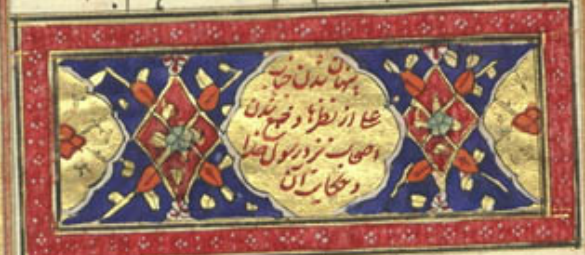 پنهان شدن جناب
از نظرها و جمع شدن
اصحاب نزد رسول خدا
و حکایت آن